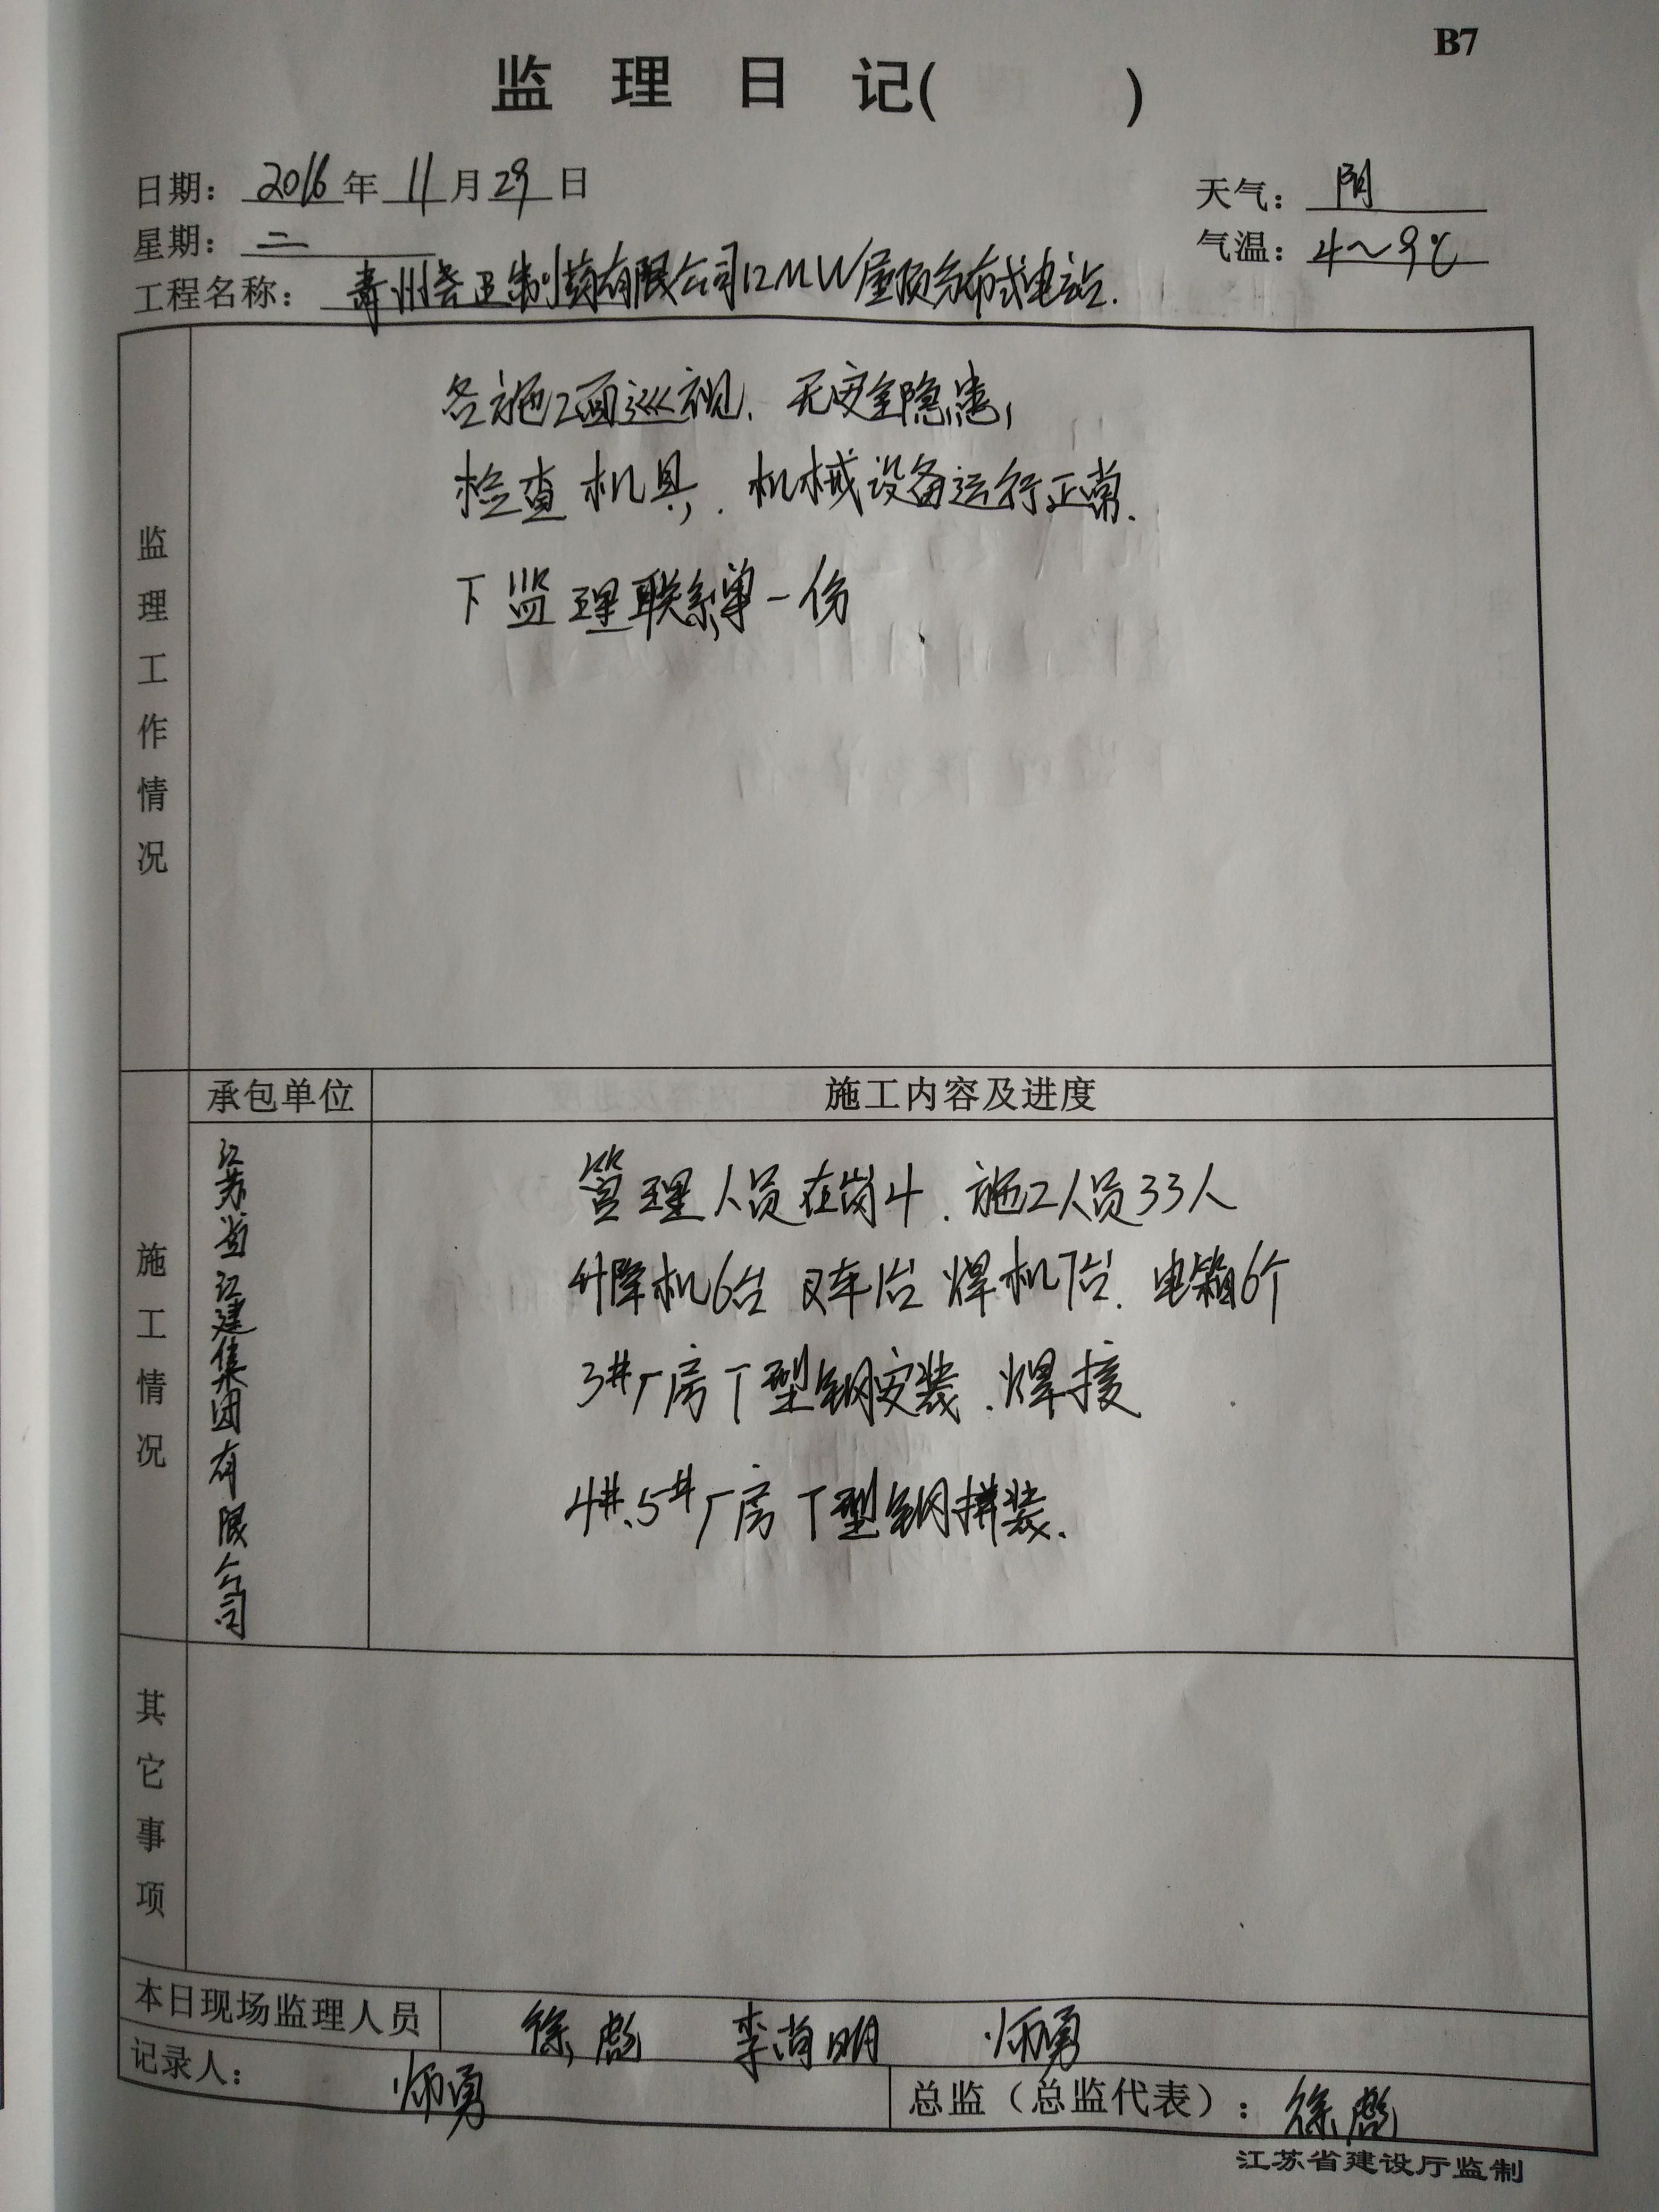 B7
监理日记( )
日期: 2016年11月29日
天气: 阴
星期: 二
气温: 4～9℃
工程名称: 青州尧王制药有限公司12MW屋顶分布式电站.
监理工作情况
各施工面巡视. 无安全隐患,
检查机具, 机械设备运行正常.
下监理联系单一份
施工情况
承包单位
施工内容及进度
江苏省江建集团有限公司
管理人员在岗4. 施工人员33人
升降机6台 叉车1台 焊机7台. 电箱6个
3#厂房T型钢安装.焊接
4#.5#厂房T型钢拼装.
其它事项
本日现场监理人员
徐彪 李尚明 勇
记录人: 勇
总监（总监代表）: 徐彪
江苏省建设厅监制